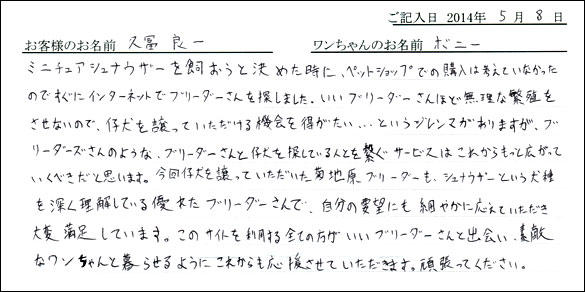 ご記入日 2014年 5 月 8 日
お客様のお名前 久冨 良一 ワンちゃんのお名前 ボニー
ミニチュアシュナウザーを飼おうと決めた時に、ペットショップでの購入は考えていなかった
のですぐにインターネットでブリーダーさんを探しました。いいブリーダーさんほど無理な繁殖を
させないので、仔犬を譲っていただける機会を得がたい…というジレンマがありますが、ブ
リーダーズさんのような、ブリーダーさんと仔犬を探している人とを繋ぐサービスはこれからもっと広がって
いくべきだと思います。今回仔犬を譲っていただいた菊地原ブリーダーも、シュナウザーという犬種
を深く理解している優れたブリーダーさんで、自分の要望にも細やかに応えていただき
大変満足しています。このサイトを利用する全ての方がいいブリーダーさんと出会い、素敵
なワンちゃんと暮らせるようにこれからも応援させていただきます。頑張ってください。